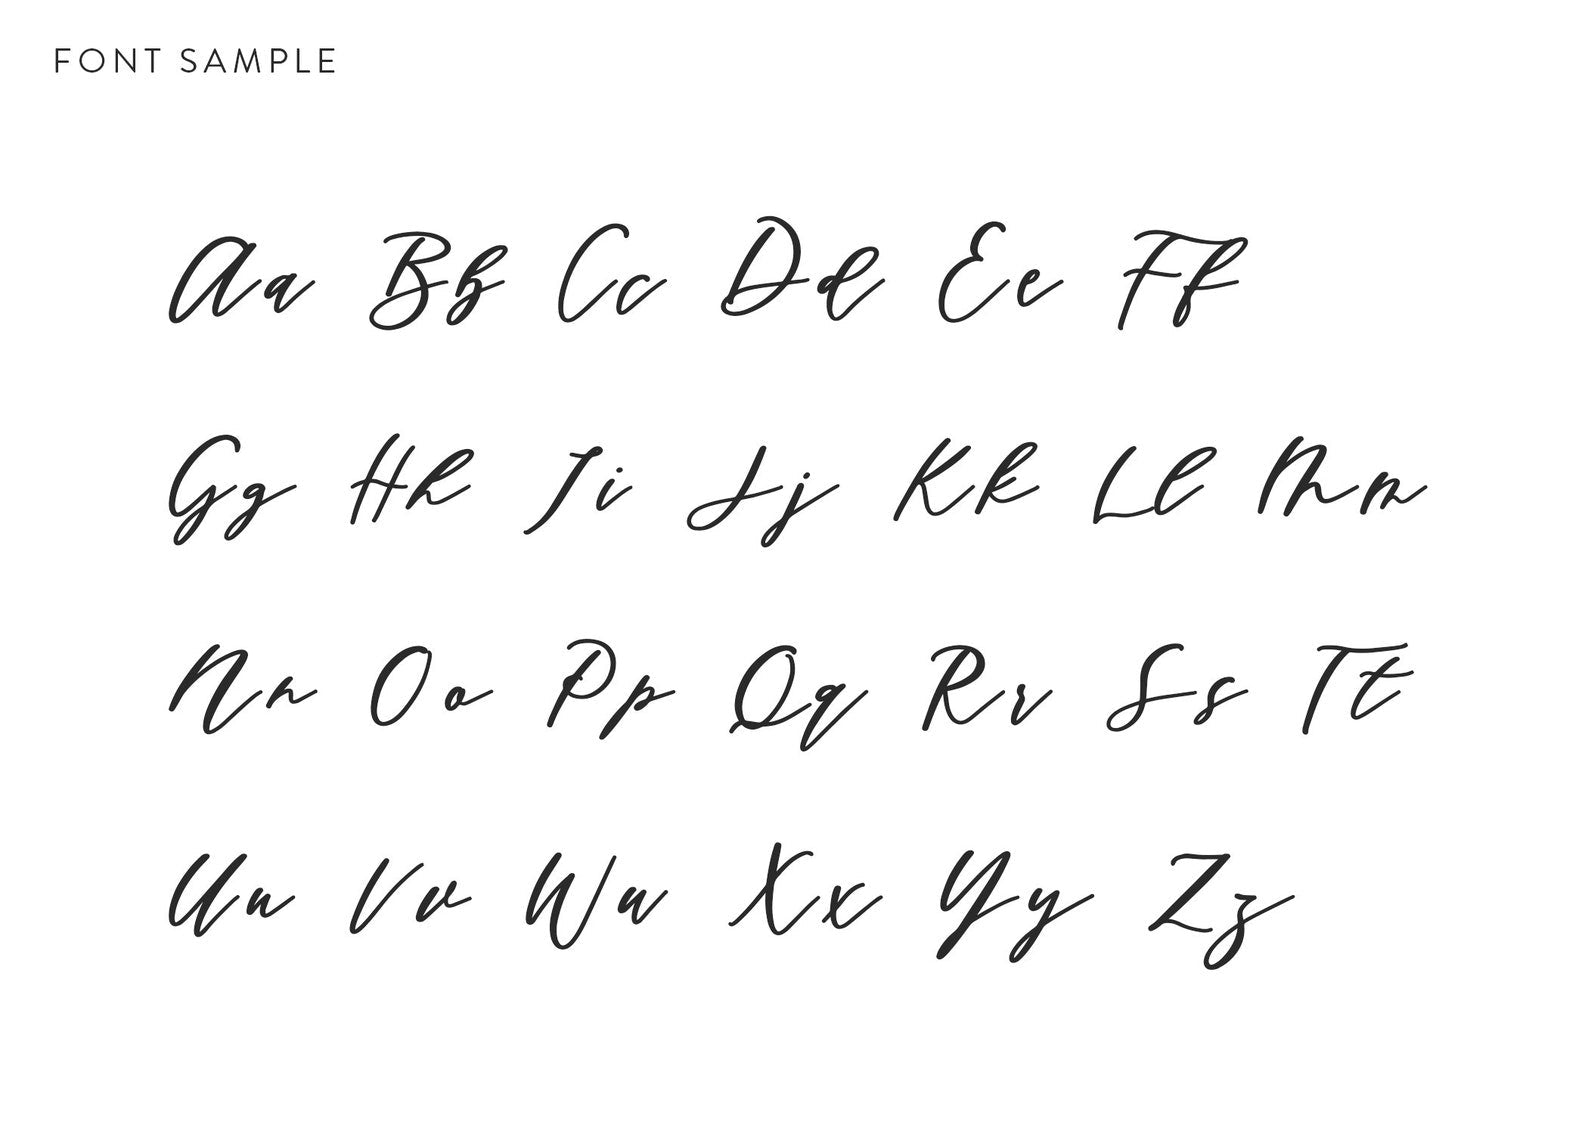 FONT SAMPLE
Aa Bb Cc Dd Ee Ff
Gg Hh Ii Jj Kk Ll Mm
Nn Oo Pp Qq Rr Ss Tt
Uu Vv Ww Xx Yy Zz